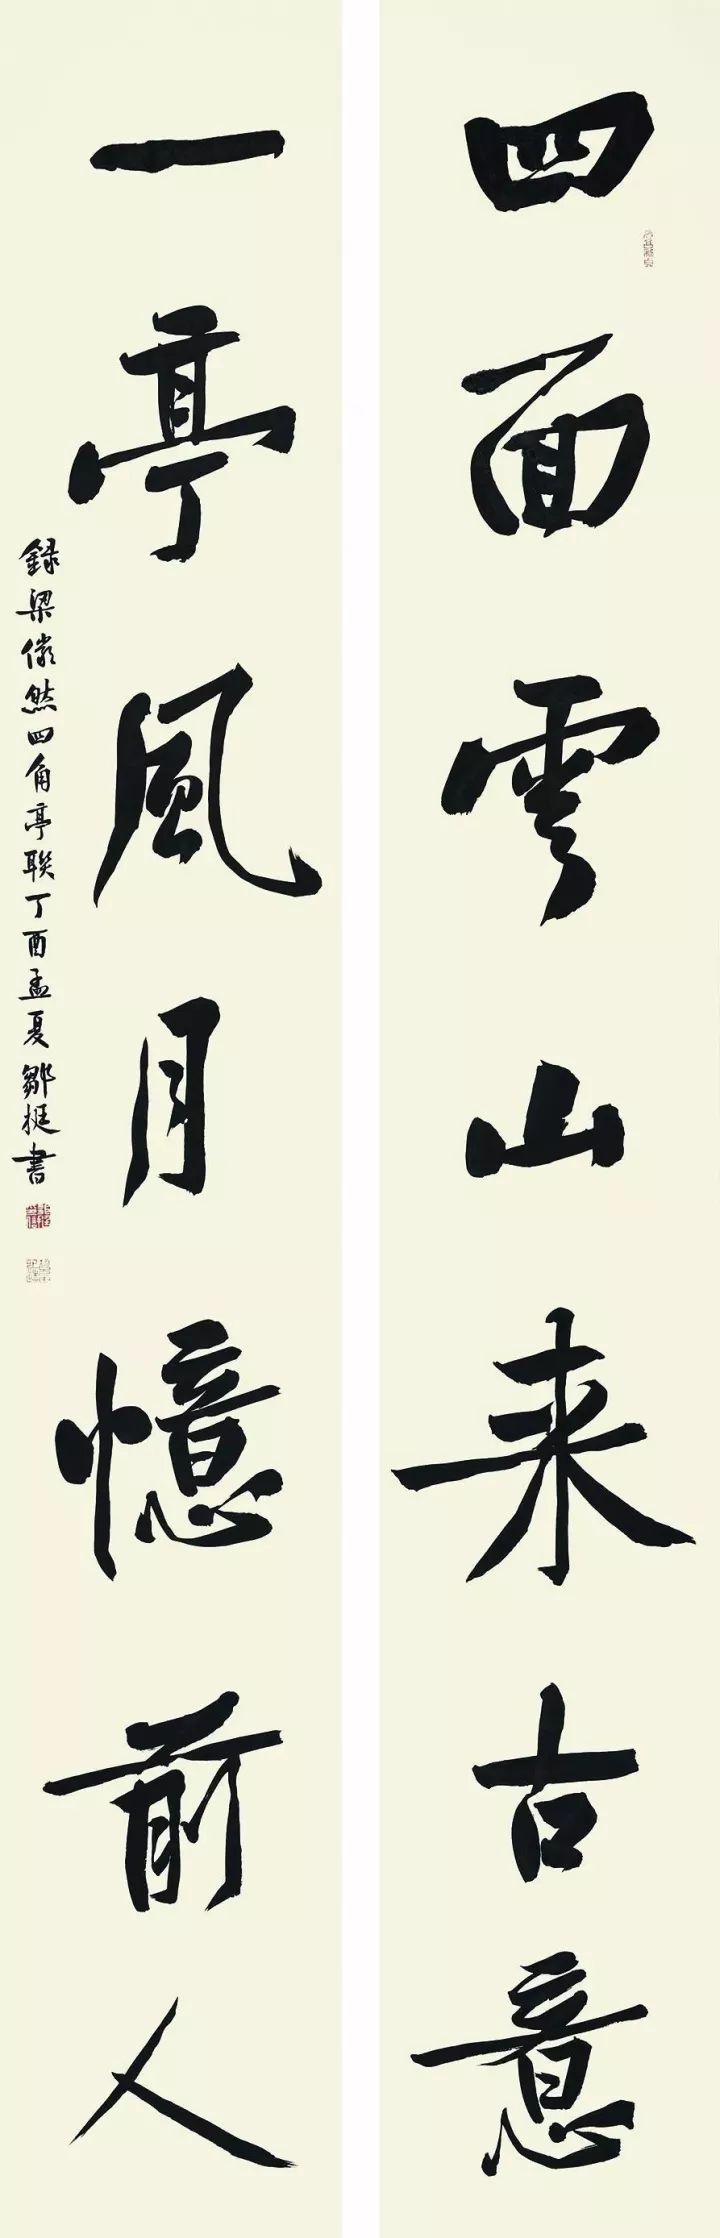 四面雲山来古意
一亭風月憶前人
録梁儼然四角亭联丁酉孟夏鄒挺書